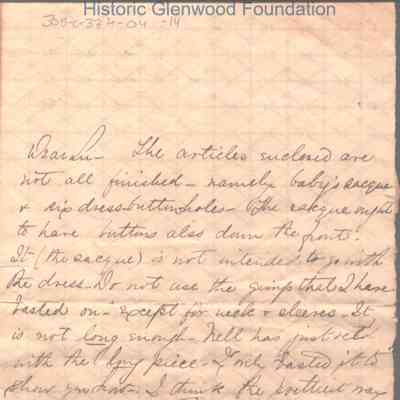 Historic Glenwood Foundation
The articles enclosed are
not all finished - namely baby's sacque
& six dress-buttonholes - The sacque ought
to have buttons also down the front.
It (the sacque) is not intended to go with
the dress - Do not use the gimp that I have
basted on - except for neck & sleeves - It
is not long enough - Nell has just
with the long piece - & only basted it to
show you how. I think the prettiest way